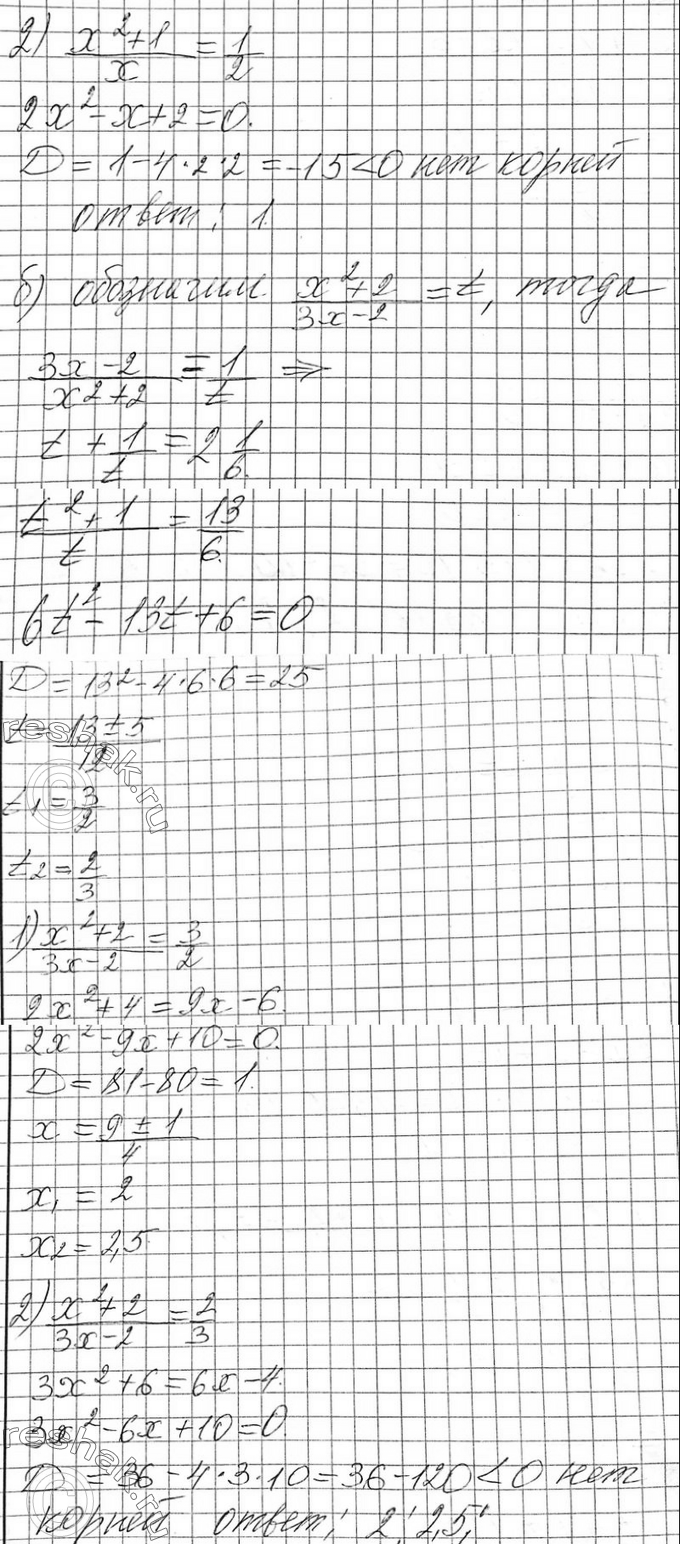 2) x²+1/x = 1/2
2x²-x+2=0.
D = 1-4·2·2 = -15<0 нет корней
ответ: 1.
б) обозначим x²+2/3x-2 = t, тогда
3x-2/x²+2 = 1/t ⇒
t + 1/t = 2 1/6.
t²+1/t = 13/6.
6t²-13t+6=0
D = 13²-4·6·6=25
t = 13±5/12
t₁ = 3/2
t₂ = 2/3
1) x²+2/3x-2 = 3/2
2x²+4=9x-6.
2x²-9x+10=0.
D = 81-80=1.
x = 9±1/4
x₁ = 2
x₂ = 2,5
2) x²+2/3x-2 = 2/3
3x²+6=6x-4.
3x²-6x+10=0.
D = 36-4·3·10=36-120<0 нет
корней ответ: 2; 2,5;
reshak.ru
reshak.ru